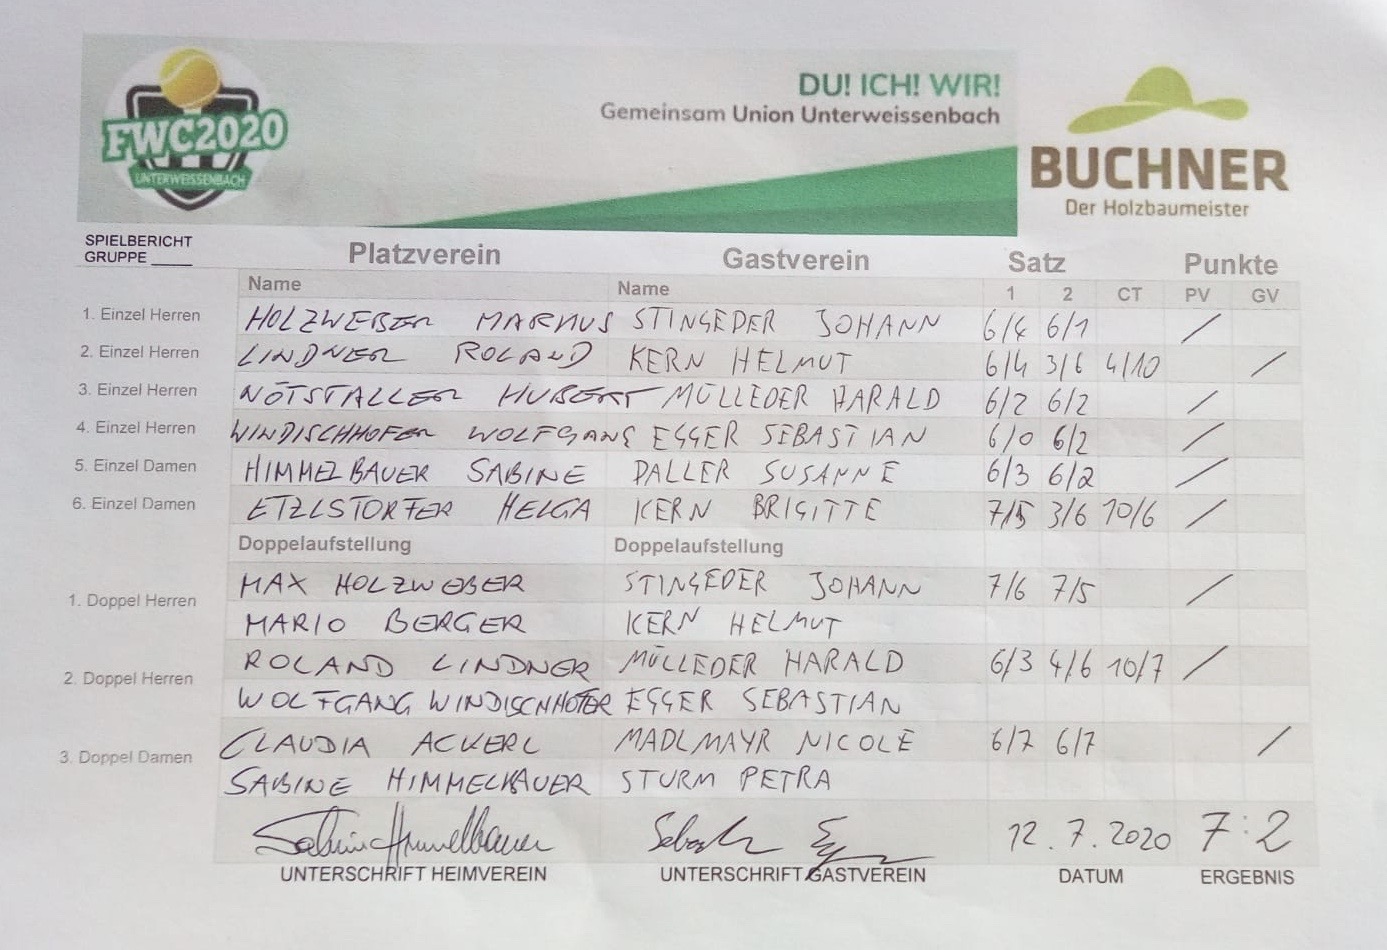 FWC2020
UNTERWEISSENBACH
DU! ICH! WIR!
Gemeinsam Union Unterweissenbach
BUCHNER
Der Holzbaumeister
SPIELBERICHT
GRUPPE ____
Platzverein Gastverein Satz Punkte
Name Name 1 2 CT PV GV
1. Einzel Herren HOLZWEBER MARKUS STINGEDER JOHANN 6/4 6/1 /
2. Einzel Herren LINDNER ROLAND KERN HELMUT 6/4 3/6 4/10 /
3. Einzel Herren NÖTSTALLER HUBERT MÜLLEDER HARALD 6/2 6/2 /
4. Einzel Herren WINDISCHHOFER WOLFGANG EGGER SEBASTIAN 6/0 6/2 /
5. Einzel Damen HIMMELBAUER SABINE PALLER SUSANNE 6/3 6/2 /
6. Einzel Damen ETZLSTORFER HELGA KERN BRIGITTE 7/5 3/6 10/6 /
Doppelaufstellung Doppelaufstellung
1. Doppel Herren MAX HOLZWEBER STINGEDER JOHANN 7/6 7/5 /
MARIO BERGER KERN HELMUT
2. Doppel Herren ROLAND LINDNER MÜLLEDER HARALD 6/3 4/6 10/7 /
WOLFGANG WINDISCHHOFER EGGER SEBASTIAN
3. Doppel Damen CLAUDIA ACKERL MADLMAYR NICOLE 6/7 6/7 /
SABINE HIMMELBAUER STURM PETRA
Sabine Himmelbauer 12.7.2020 7:2
UNTERSCHRIFT HEIMVEREIN UNTERSCHRIFT GASTVEREIN DATUM ERGEBNIS